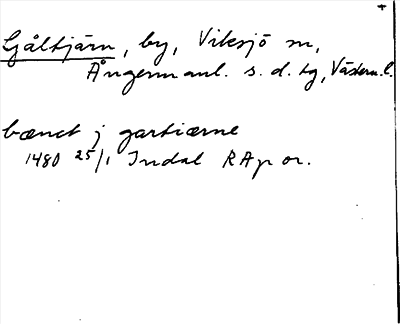 Gåltjärn, by, Viksjö sn,
Ångermanl. s. d. tg, Västern.l.
bænct j gartiærne
1480 25/1 Indal RAp or.